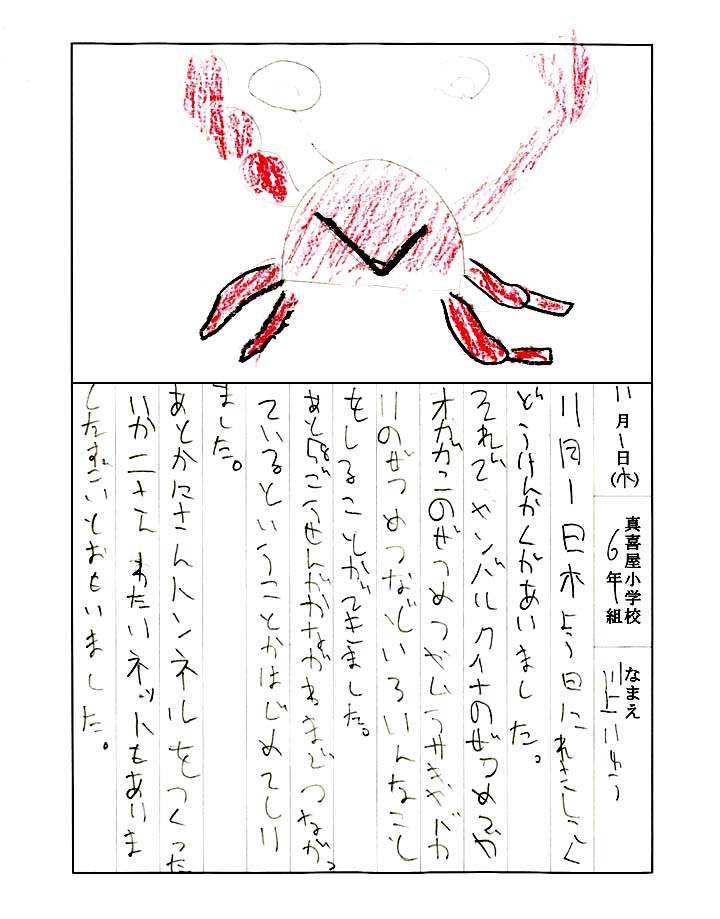 11月1日(水)
真喜屋小学校
6年 組
なまえ
川上
11月1日木よう日にれきしたく
どうけんがくがあいました。
それでヤンバルクイナのぜつめつや
オガニのぜつめつやムラサキヤドカ
リのぜつめつなどいろいんなこと
をしることができました。
あと58ごうせんがかながわまでつながっ
ているということがはじめてしり
ました。
あとかにさんトンネルをつくった
いかニさん わたいネットもあいま
したすごいとおもいました。